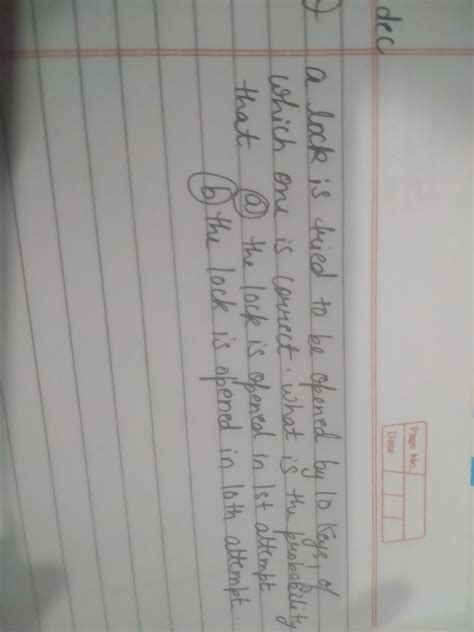 dec
Page No.
Date
a lock is tried to be opened by 10 keys, of
which one is correct. what is the probability
that (a) the lock is opened in 1st attempt
(b) the lock is opened in 10th attempt.